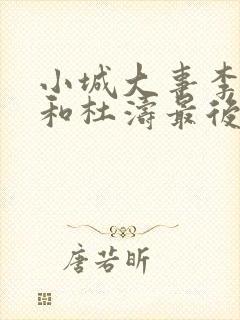 小城大喜李
和杜濤最後
唐若昕